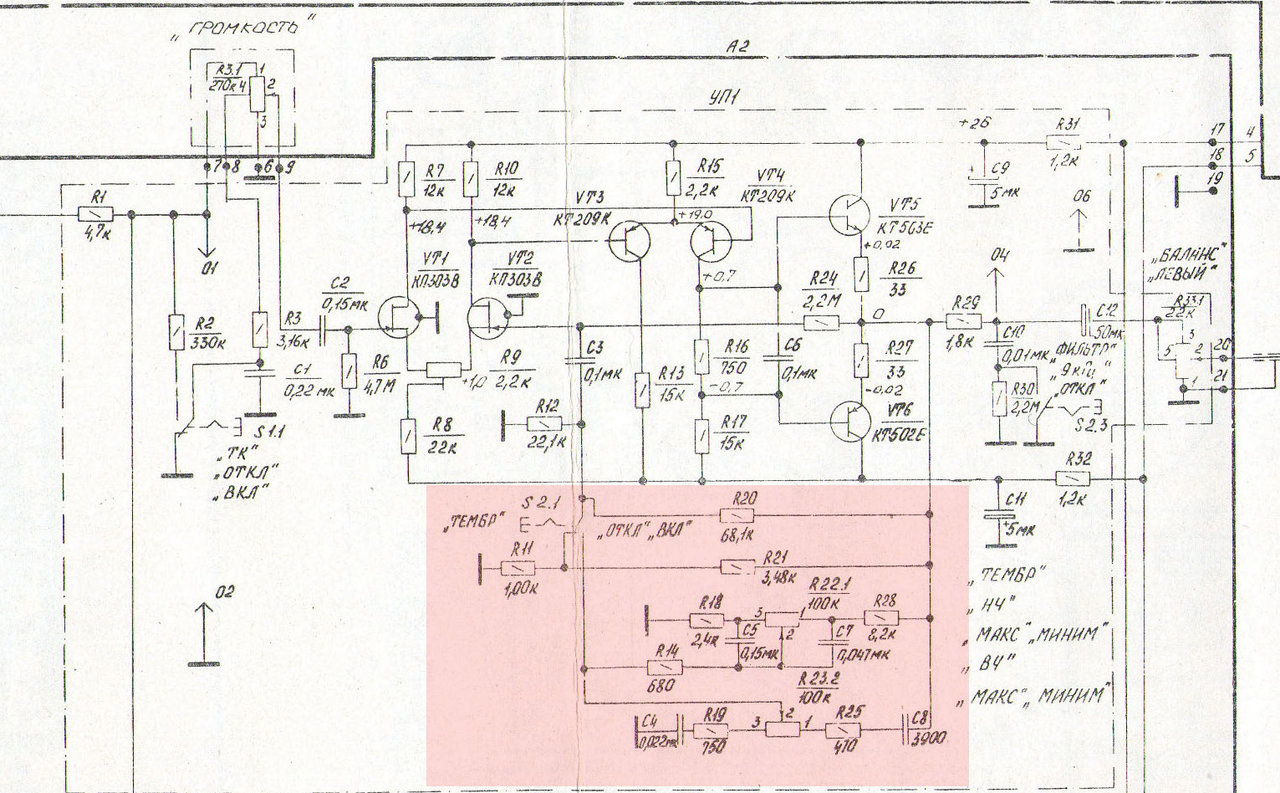 „ГРОМКОСТЬ"
А2
R3.1
270к
4
1
2
3
УП1
7
8
6
9
R1
4,7к
01
R2
330к
R3
3,16к
С1
0,22мк
S1.1
„ТК"
„ОТКЛ"
„ВКЛ"
02
С2
0,15мк
R6
4,7М
R7
12к
R10
12к
+18,4
+18,4
VT1
КП303В
VT2
КП303В
R9
2,2к
+1,0
R8
22к
R12
22,1к
С3
0,1мк
VT3
КТ209К
R15
2,2к
VT4
КТ209К
+19,0
+0,7
R13
15к
R16
750
-0,7
R17
15к
С6
0,1мк
R24
2,2М
VT5
КТ503Е
+0,02
R26
33
0
R27
33
-0,02
VT6
КТ502Е
+26
С9
+
5мк
R31
1,2к
06
04
R29
1,8к
С10
0,01мк
R30
2,2М
„ФИЛЬТР"
„9кГц"
„ОТКЛ"
S2.3
С12
50мк
„БАЛАНС"
„ЛЕВЫЙ"
R33.1
22к
3
5
2
1
17
4
18
5
19
20
21
R32
1,2к
С11
+5мк
„ТЕМБР"
S2.1
„ОТКЛ" „ВКЛ"
R20
68,1к
R11
1,00к
R21
3,48к
R22.1
100к
R18
2,4к
3
1
2
R28
8,2к
С5
0,15мк
С7
0,047мк
R14
680
R23.2
100к
С4
0,022мк
R19
750
3
2
1
R25
470
С8
3900
„ТЕМБР"
„НЧ"
„МАКС" „МИНИМ"
„ВЧ"
„МАКС" „МИНИМ"